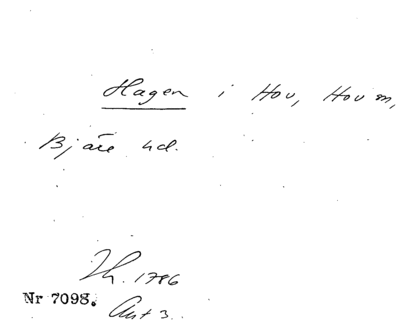 Hagen i Hov, Hov sn,
Bjäre hd.
Lh. 1786
Nr 7098.
Akt 3.